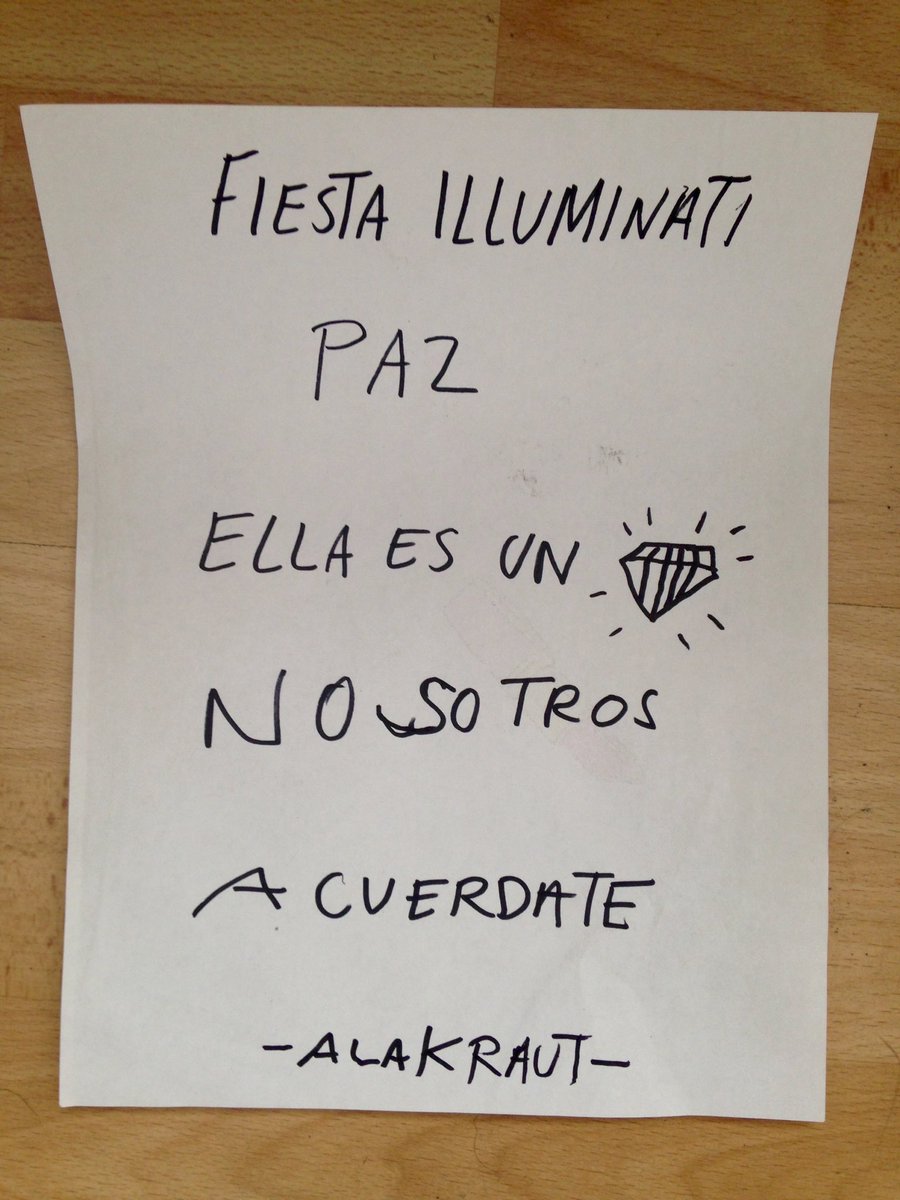 FIESTA ILLUMINATI
PAZ
ELLA ES UN
NOSOTROS
ACUERDATE
-ALAKRAUT-